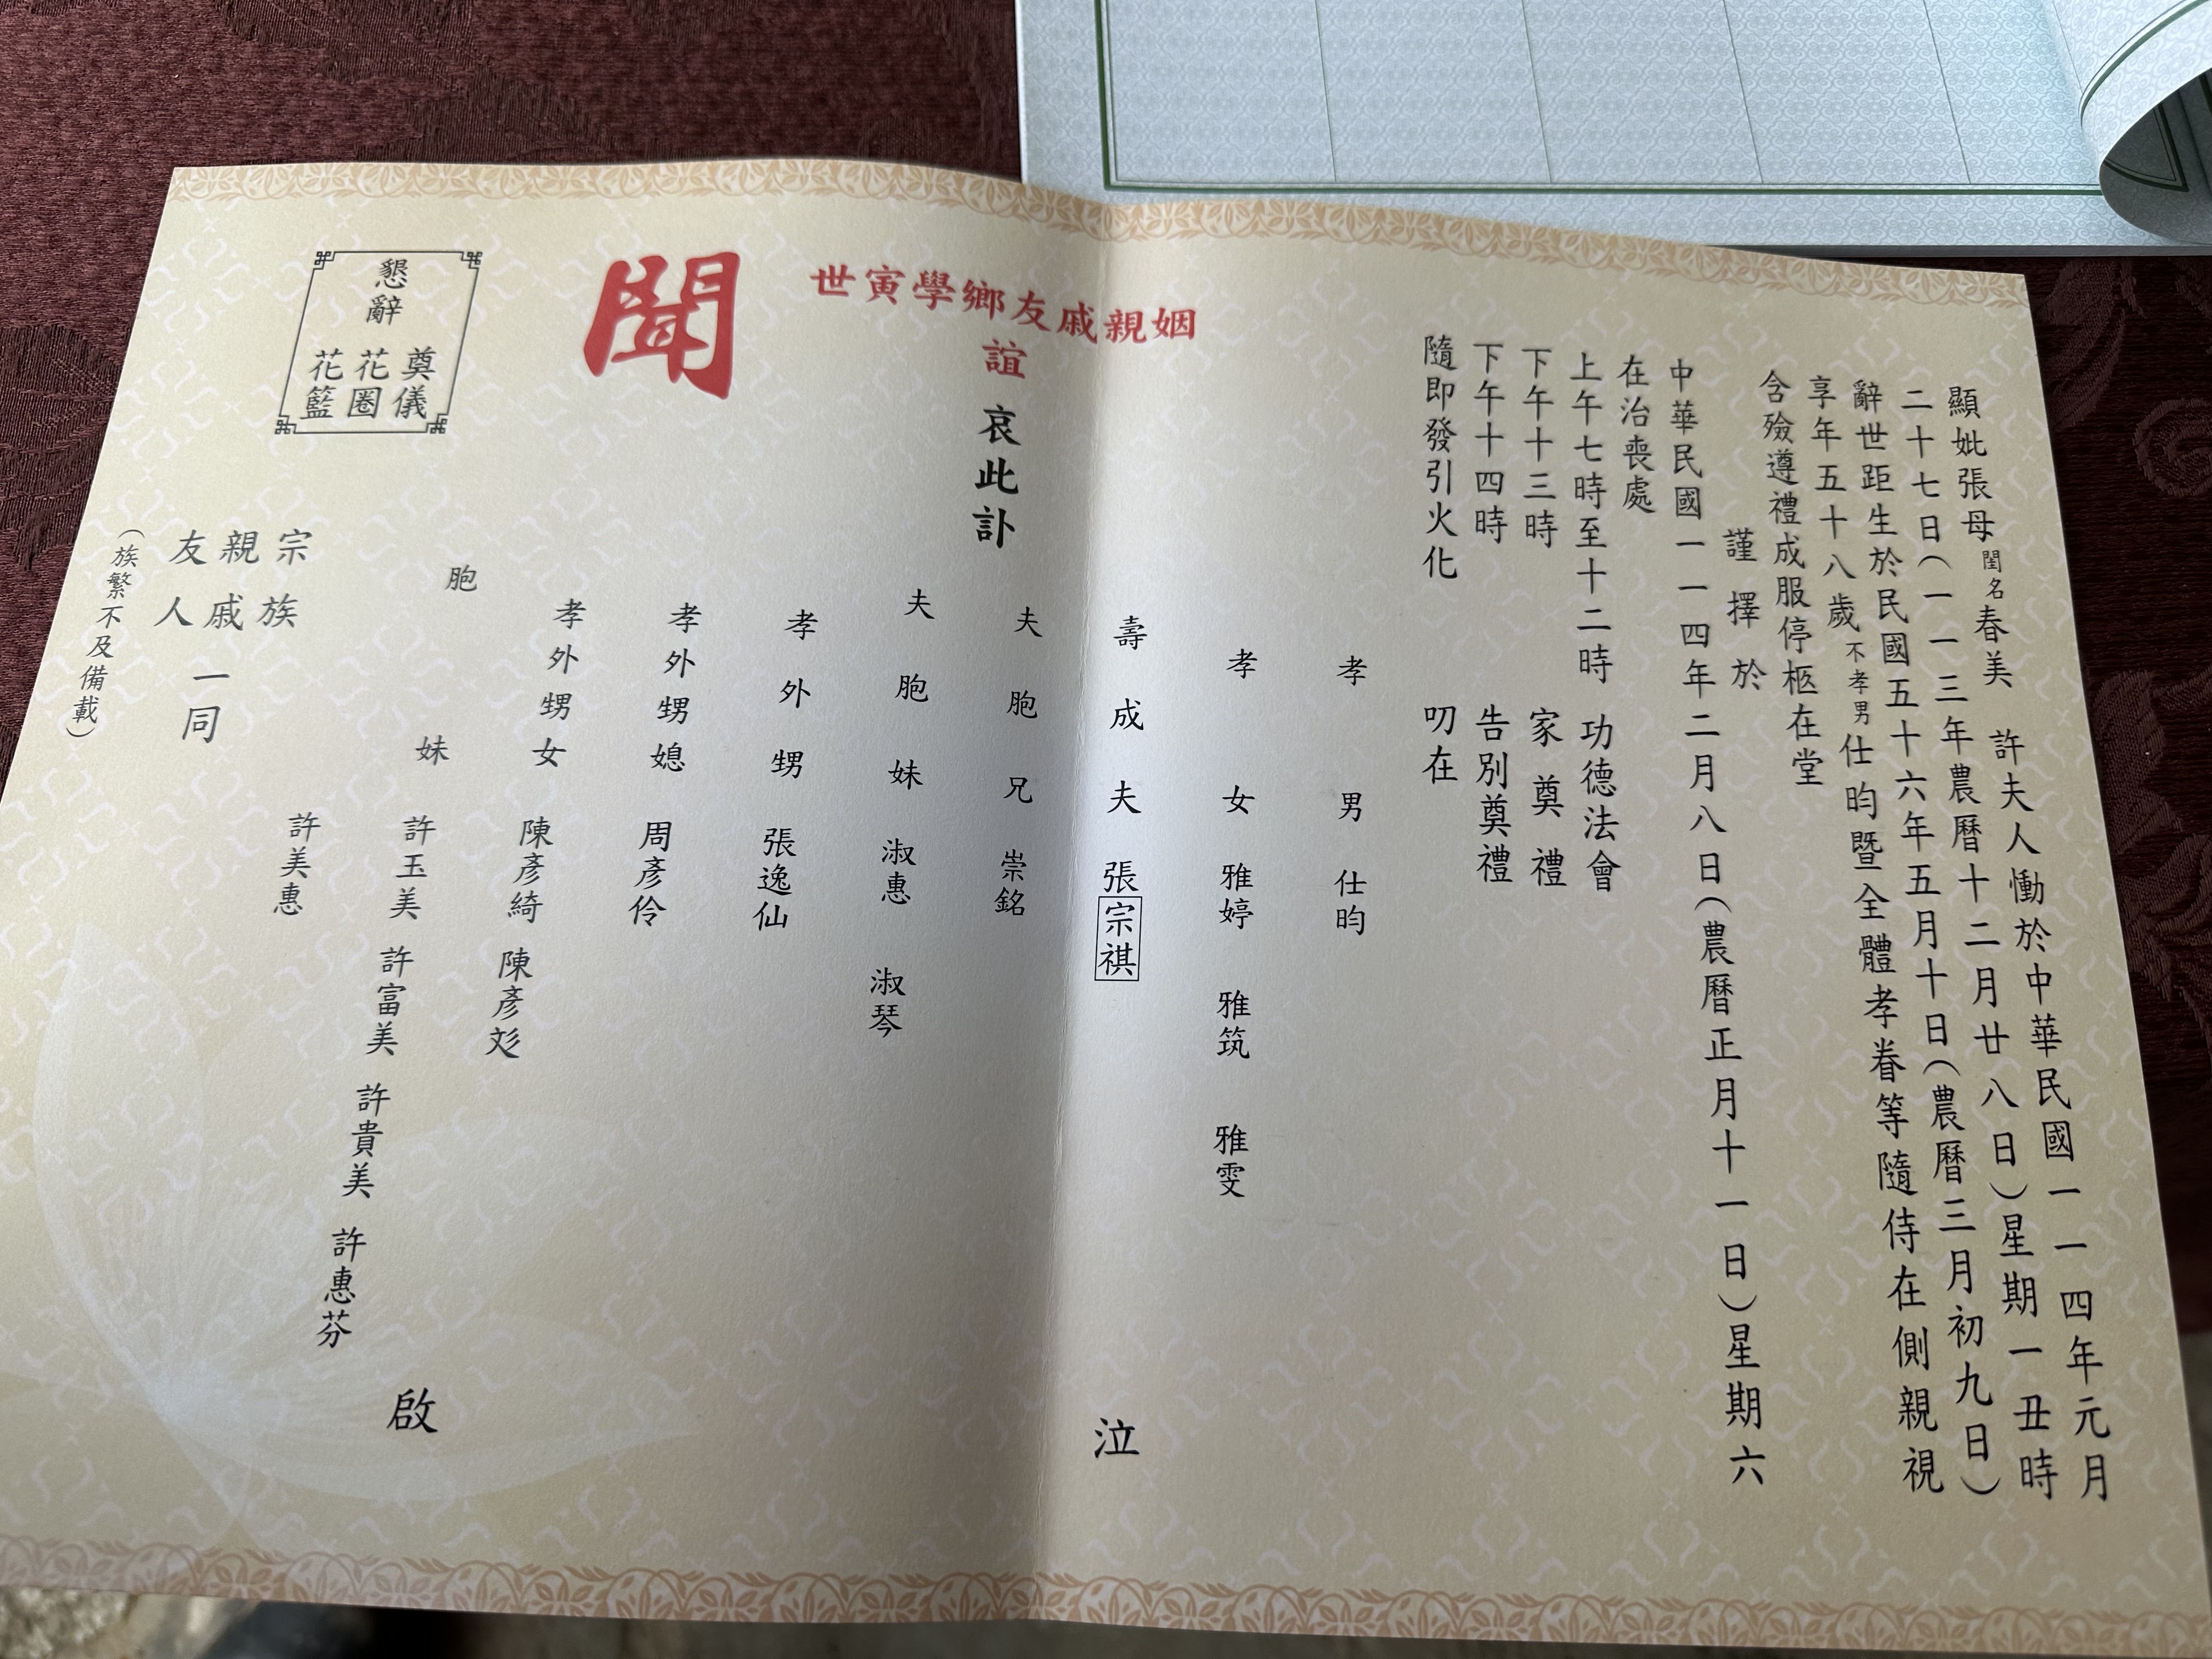 顯妣張母閨名春美 許夫人慟於中華民國一一四年元月
二十七日(一一三年農曆十二月廿八日)星期一丑時
辭世距生於民國五十六年五月十日(農曆三月初九日)
享年五十八歲不孝男仕昀暨全體孝眷等隨侍在側親視
含殮遵禮成服停柩在堂
謹擇於
中華民國一一四年二月八日(農曆正月十一日)星期六
在治喪處
上午七時至十二時 功德法會
下午十三時 家奠禮
下午十四時 告別奠禮
隨即發引火化 叨在
姻親戚友鄉學寅世
誼
哀此訃
聞
孝男 仕昀
孝女 雅婷 雅筑 雅雯
壽成夫 張宗祺
泣
夫胞兄 崇銘
夫胞妹 淑惠 淑琴
孝外甥 張逸仙
孝外甥媳 周彥伶
孝外甥女 陳彥綺 陳彥彣
胞妹 許玉美 許富美 許貴美 許惠芬
許美惠
啟
宗族
親戚
友人
一同
(族繁不及備載)
懇辭
奠儀
花圈
花籃